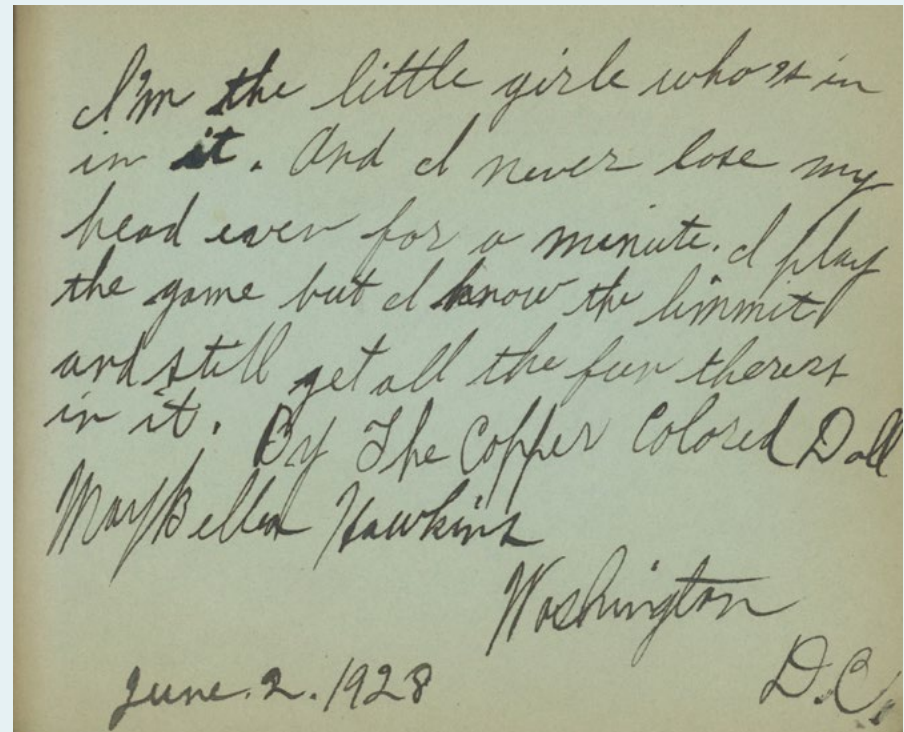 I'm the little girle who's in
in it. And I never lose my
head even for a minute. I play
the game but I know the limmit
and still get all the fun theres
in it. By The Copper Colored Doll
MayBellea Hawkins
Washington
D.C.
June. 2. 1928